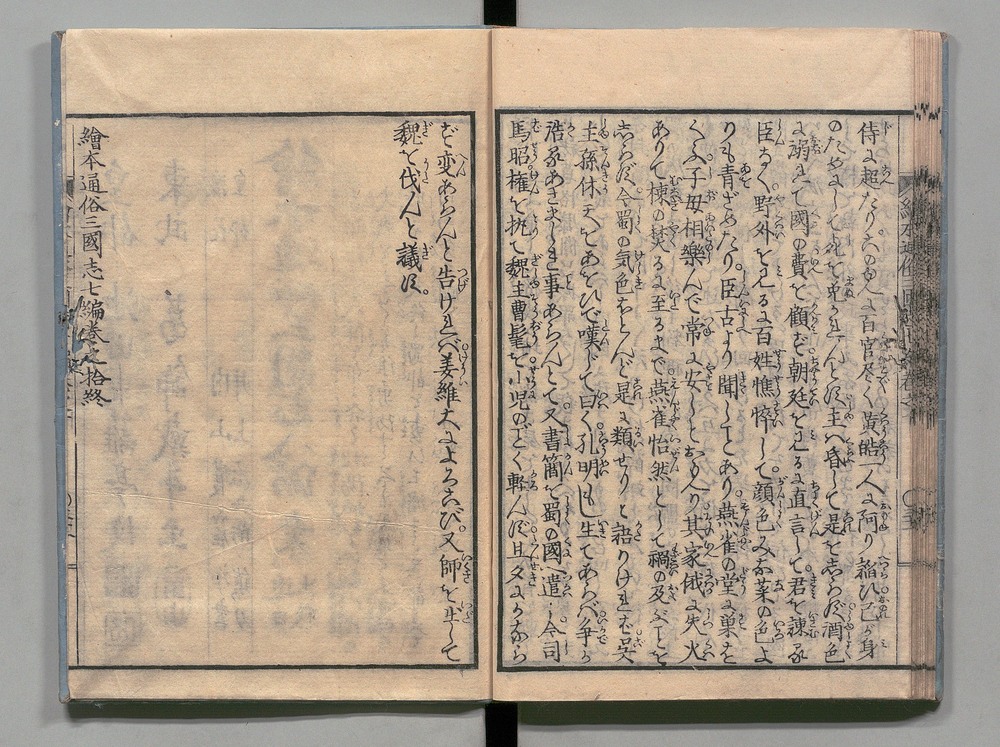 侍に超たり六の免に百官尽く黄皓一人に阿り諂ひ己が身
のためにして死を免かれんとす主ハ昏して是をしらず酒色
に溺れて國の費を顧ず朝廷を見るに直言して君を諫る
臣なく野外を見るに百姓憔悴して顔色みな菜の色よ
りも青ざめたり臣古より聞してあり燕雀の堂に巣を
くふ子母相樂んで常に安しとおもへり其家俄に失火
ありて棟の焚るに至るまで燕雀怡然として禍の及ぶことを
しらず今蜀の気色ほとんど是に類せりと語りけれバ呉
主孫休天をあふひで嘆じて曰く孔明もし生てあらバ争か
浩るあさましき事あらんとて又書簡を蜀の國へ遣し今司
馬昭権を執て魏主曹髦を小児のごとく軽んず旦夕にかなら
ず変あらんと告けれバ姜維大によろこび又師を出して
魏を伐んと議す。
繪本通俗三國志七編巻之拾終